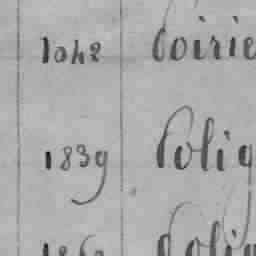 1042 Poirie
1839 Polig
Polig